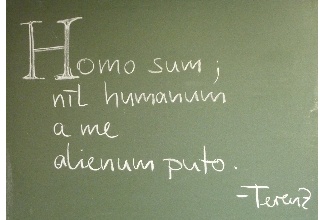 Homo sum ;
nil humanum
a me
alienum puto.
-Terenz